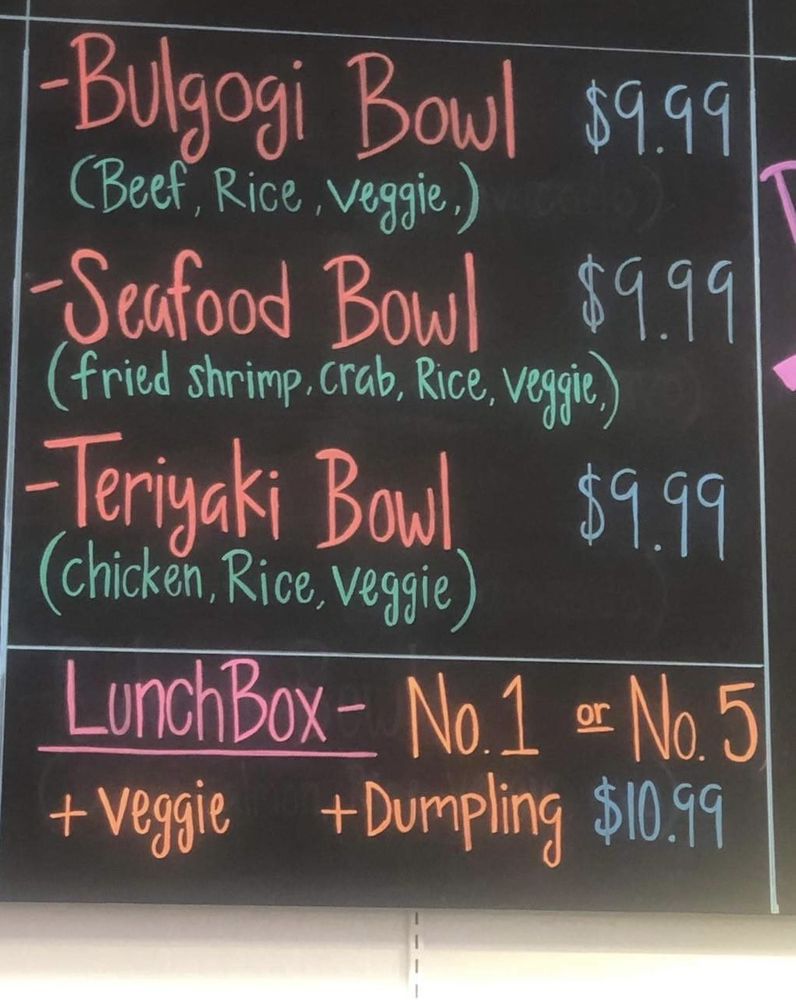 -Bulgogi Bowl $9.99
(Beef, Rice, veggie,)
-Seafood Bowl $9.99
(fried shrimp, crab, Rice, veggie,)
-Teriyaki Bowl $9.99
(chicken, Rice, veggie)
LunchBox - No. 1 or No. 5
+ veggie + Dumpling $10.99